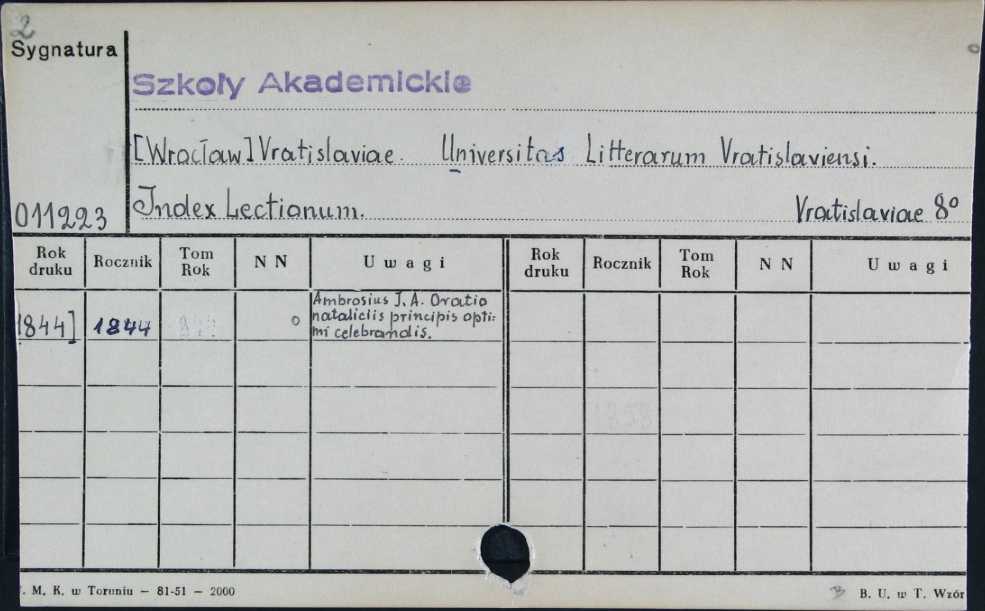 2
Sygnatura
Szkoły Akademickie
[Wrocław] Vratislaviae. Universitas Litterarum Vratislaviensi.
011223
Index Lectionum. Vratislaviae 8º
Rok druku Rocznik Tom Rok N N Uwagi Rok druku Rocznik Tom Rok N N Uwagi
1844] 1844 o Ambrosius J. A. Oratio
nataliciis principis opti-
mi celebrandis.
M. K. w Toruniu — 81-51 — 2000
B. U. w T. Wzór